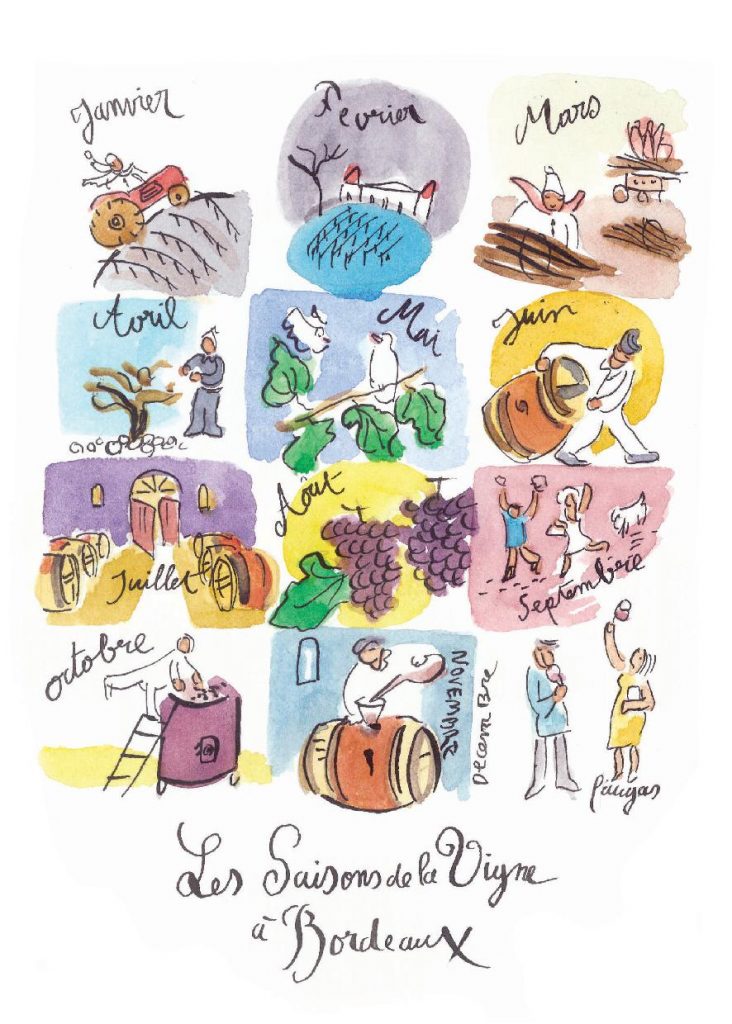 Janvier
Février
Mars
Avril
Mai
Juin
Juillet
Août
Septembre
Octobre
NOVEMBRE
Décembre
Les Saisons de la Vigne
à Bordeaux